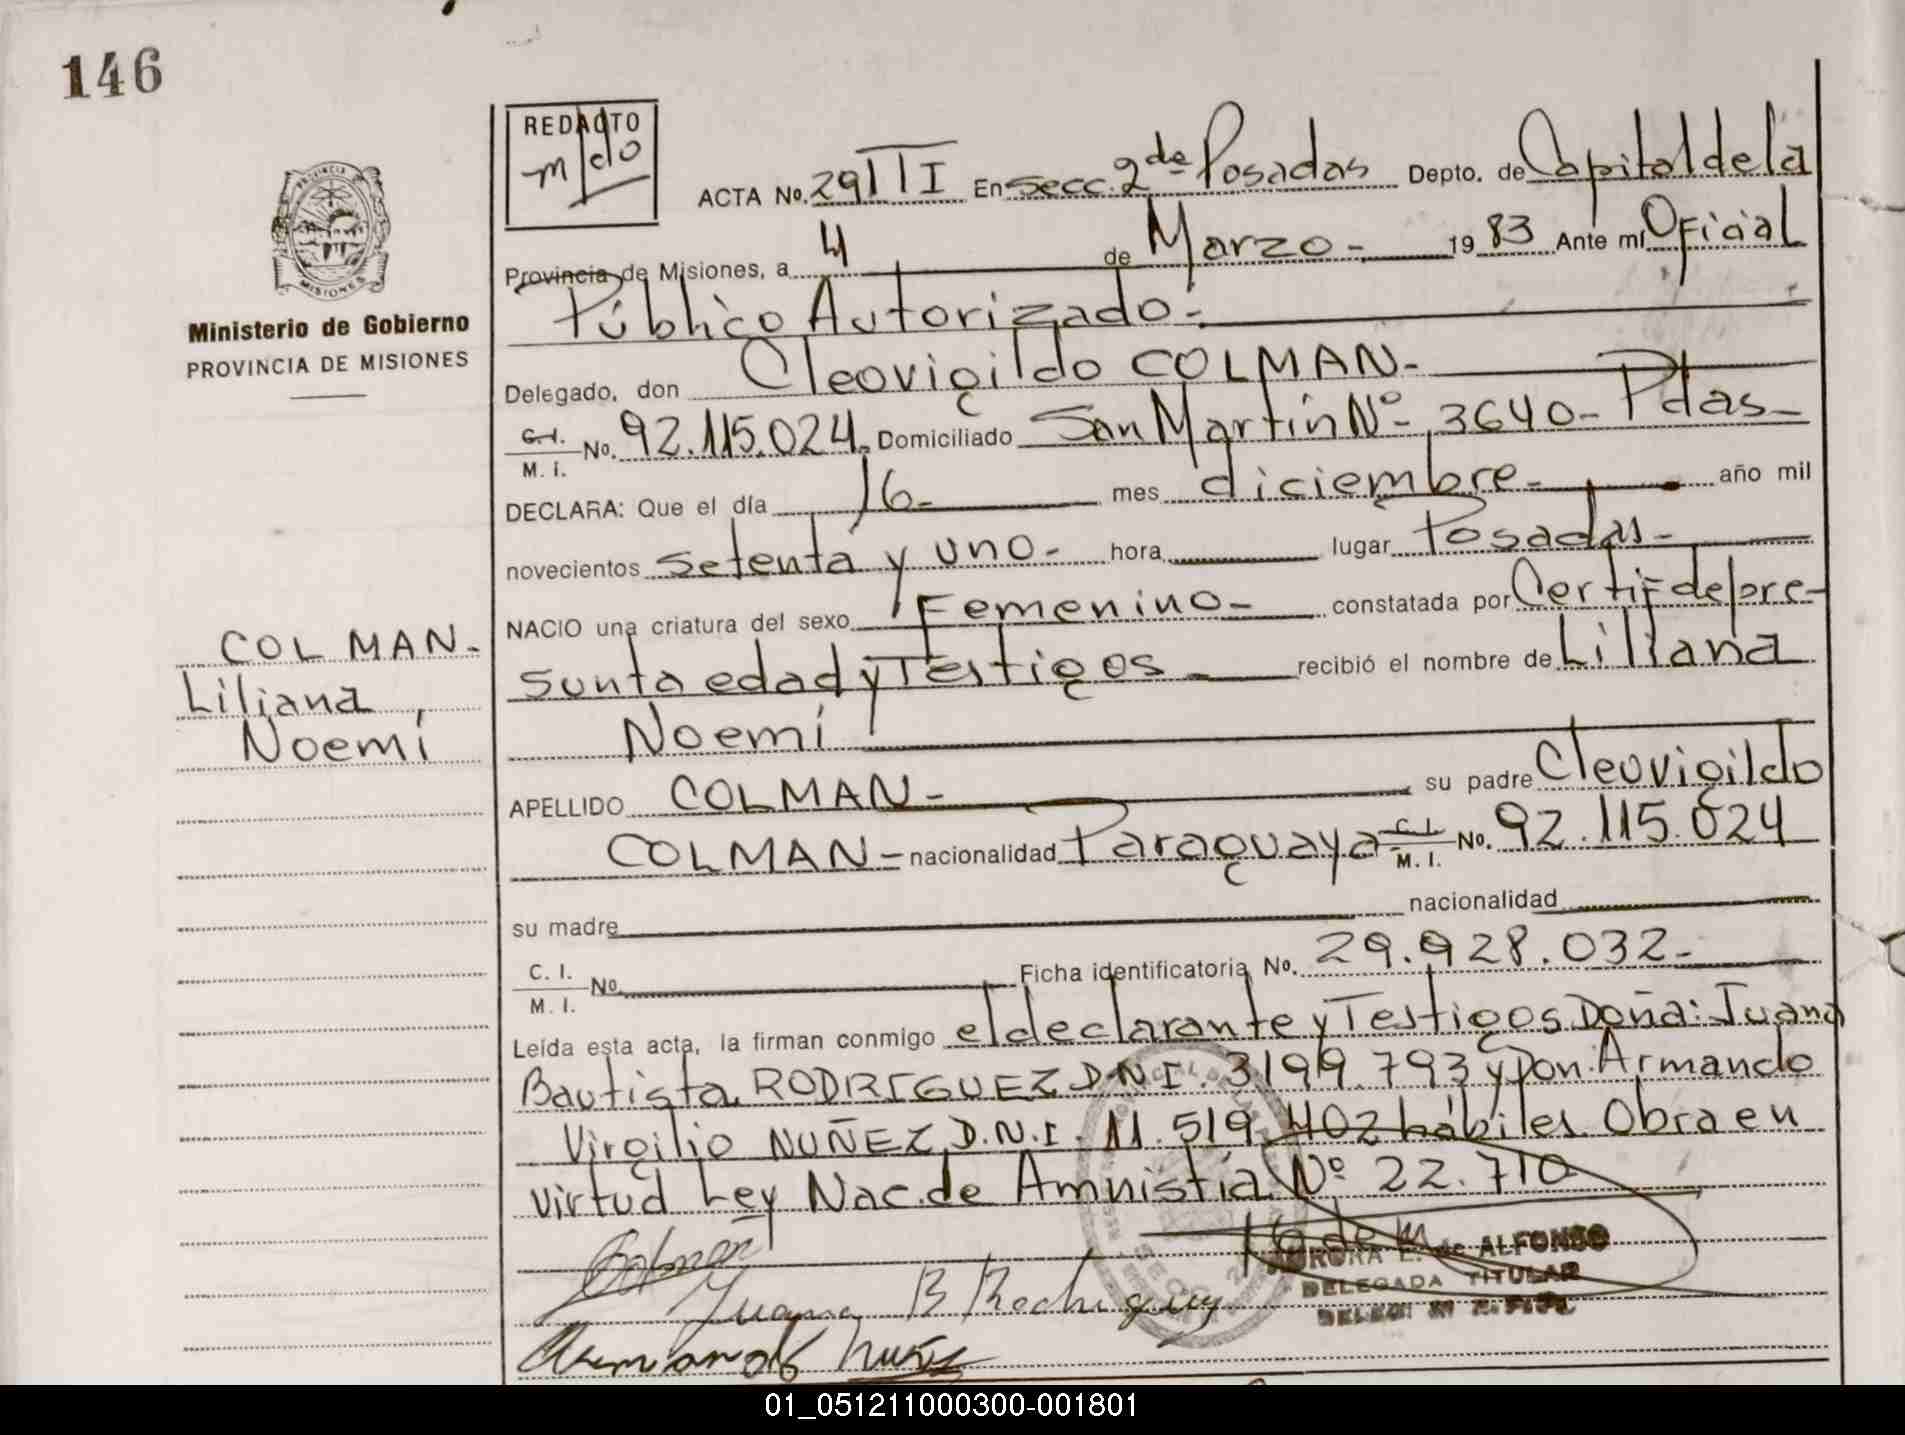 146
REDACTO
ACTA No. 29 III En Secc. 2da Posadas Depto. de Capital de la
Provincia de Misiones, a 4 de Marzo - 1983 Ante mí Oficial
Público Autorizado -
Delegado, don Cleovigildo COLMAN -
C. I. / M. I. No. 92.115.024. Domiciliado San Martín Nº - 3640 - Pdas -
DECLARA: Que el día 16 - mes diciembre - año mil
novecientos setenta y uno - hora lugar Posadas -
NACIO una criatura del sexo Femenino - constatada por Certif de pre-
sunta edad y Testigos - recibió el nombre de Liliana
Noemí
APELLIDO COLMAN - su padre Cleovigildo
COLMAN - nacionalidad Paraguaya C. I. / M. I. No. 92.115.024
su madre nacionalidad
C. I. / M. I. No. Ficha identificatoria No. 29.928.032 -
Leída esta acta, la firman conmigo el declarante y Testigos Doña: Juana
Bautista RODRIGUEZ D.N.I. 3199.793 y Don. Armando
Virgilio NUÑEZ D.N.I. 11.519.402 hábiles. Obra en
virtud Ley Nac. de Amnistía Nº 22.710
Colman
Juana B Rodriguez
de ALFONSO
DELEGADA TITULAR
Armando Nuñez
PROVINCIA
MISIONES
Ministerio de Gobierno
PROVINCIA DE MISIONES
COLMAN -
Liliana,
Noemí
01_051211000300-001801